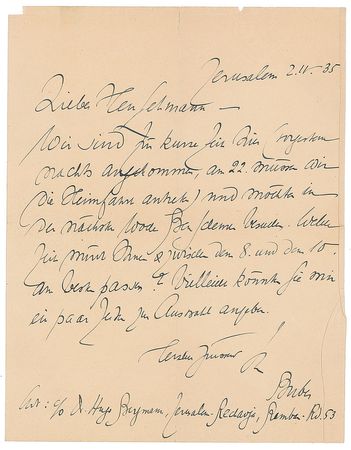 Jerusalem 2.IV.35
Lieber Herr Lehmann –
Wir sind für kurze Zeit hier (vorgestern
nachts angekommen, am 22. müssen wir
die Heimfahrt antreten) und möchten in
der nächsten Woche Ben Schemen besuchen. Welcher
Tag würde Ihnen zwischen dem 8. und dem 10.
am besten passen? Vielleicht könnten Sie mir
ein paar Zeiten zur Auswahl angeben.
Herzlich Ihr
Buber
Adr: c/o Dr. Hugo Bergmann, Jerusalem-Rechavja, Ramban-Rd. 53